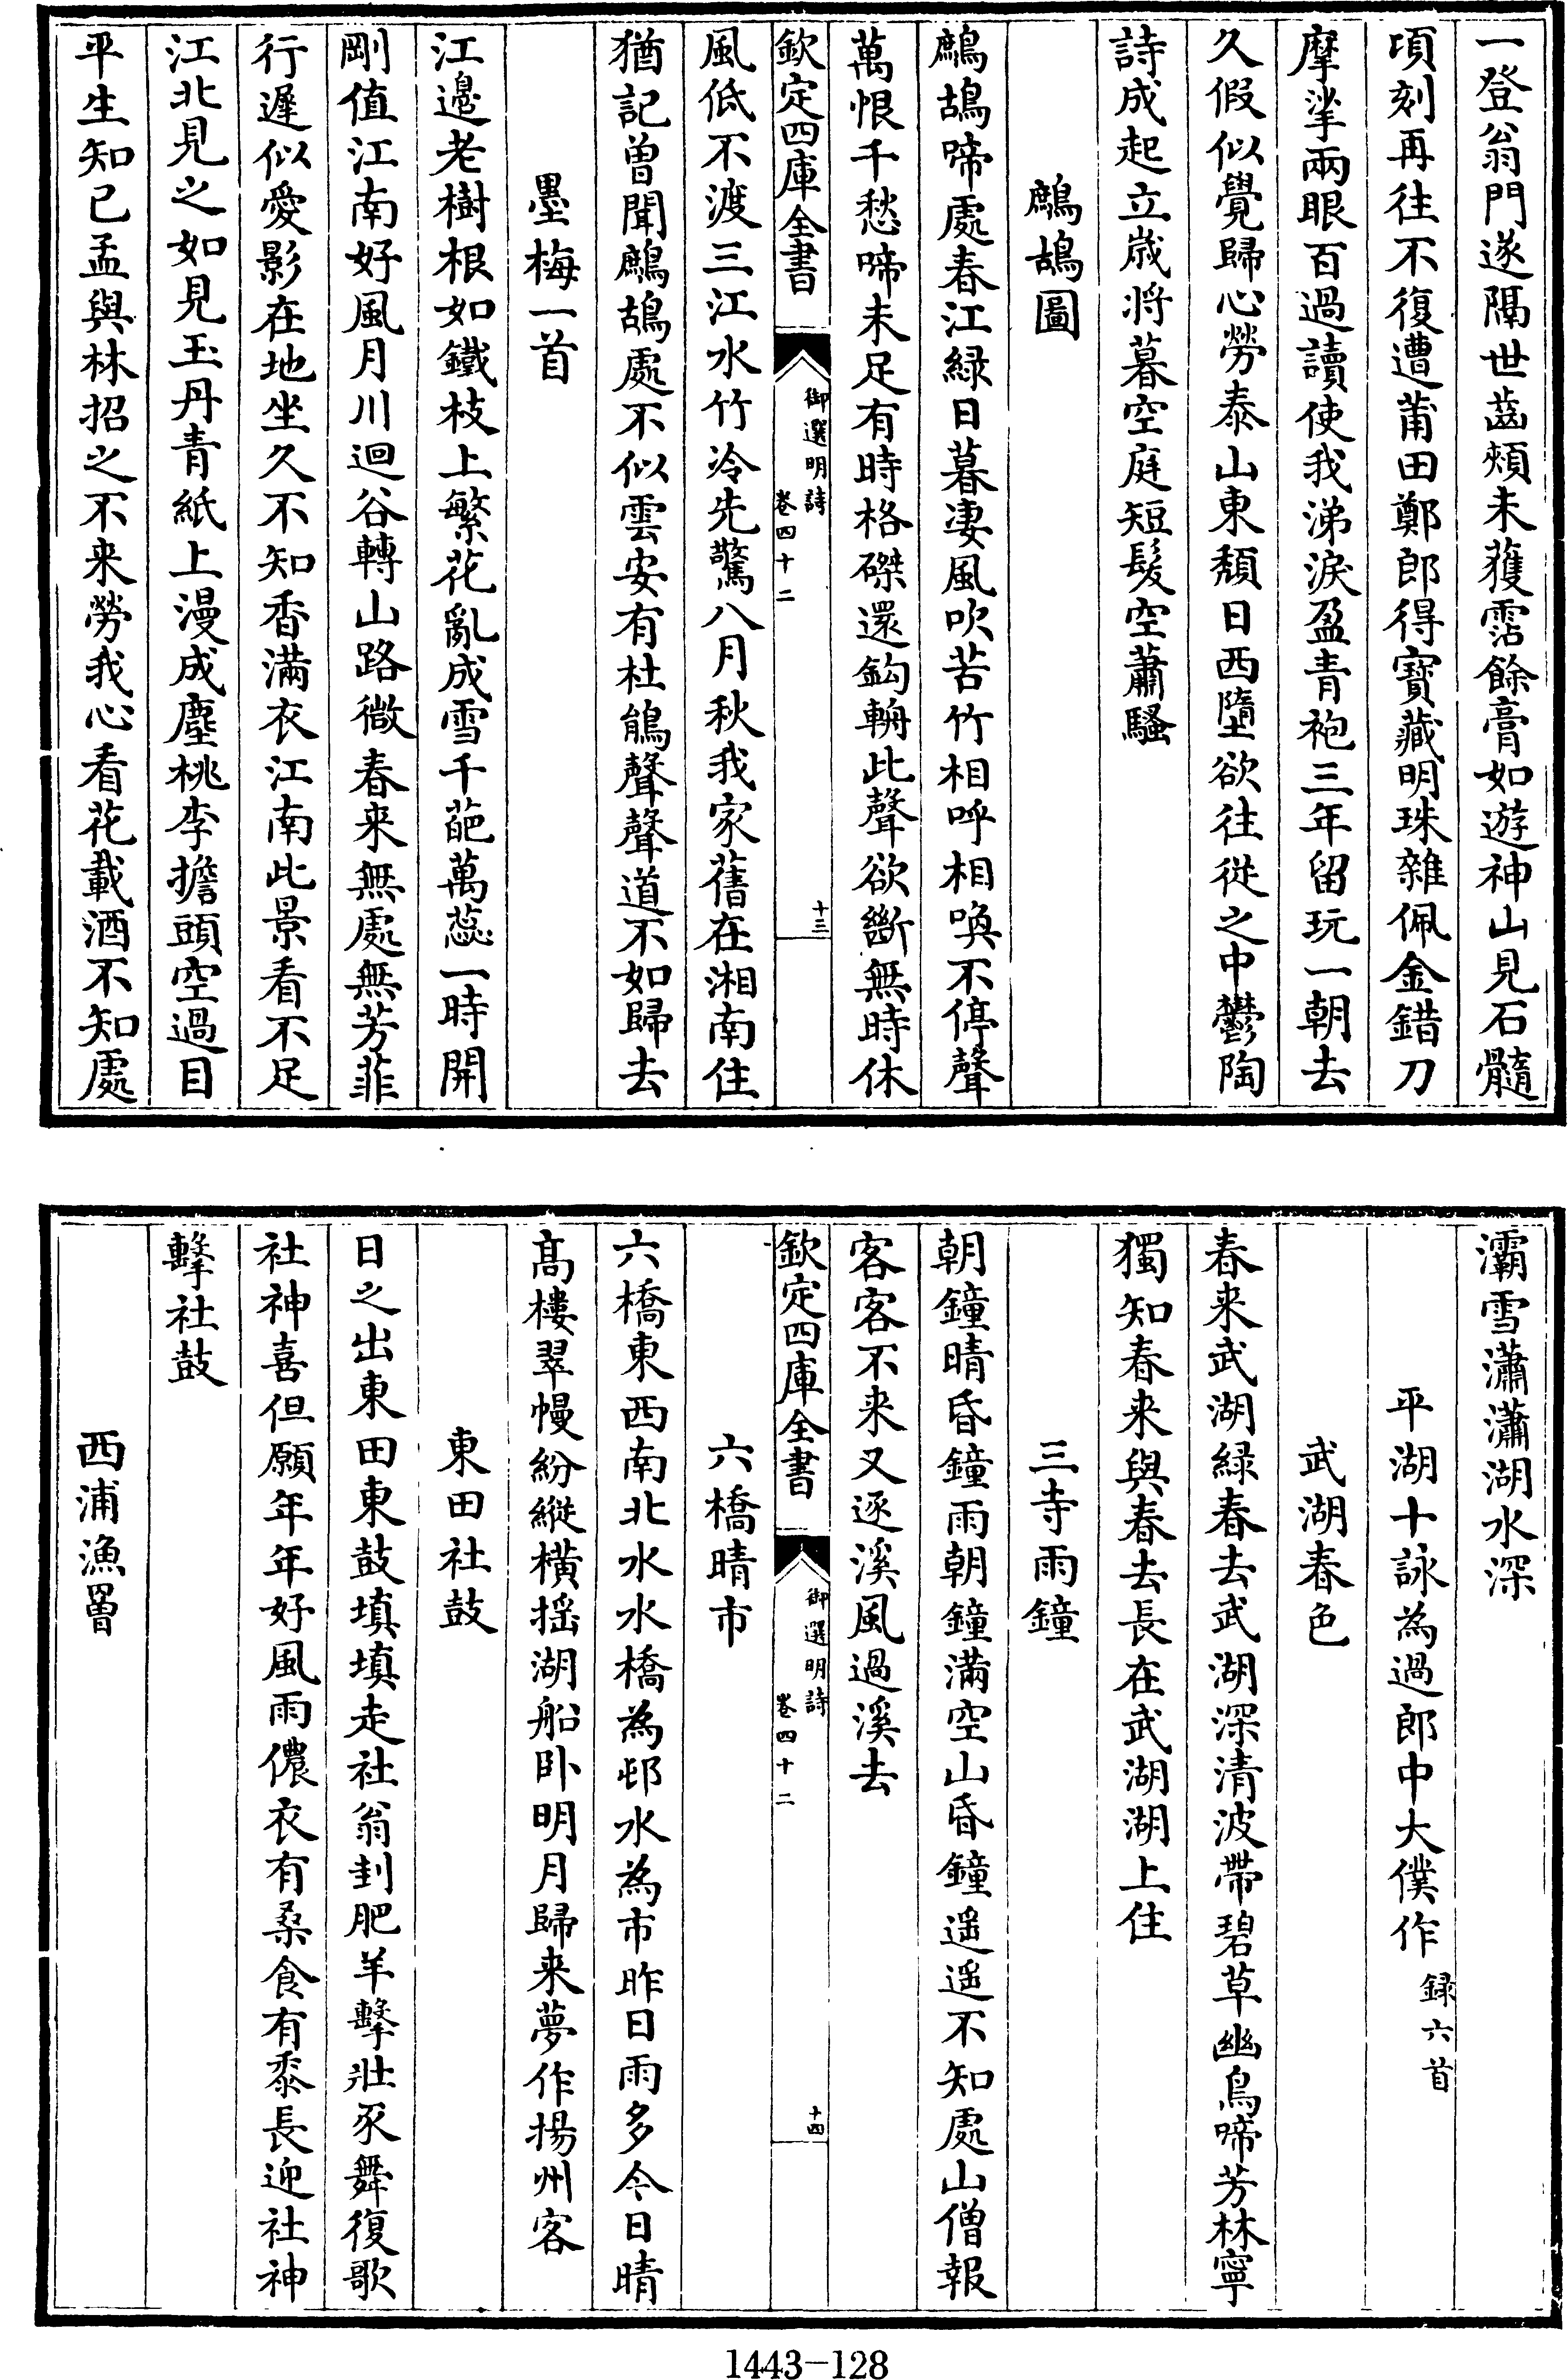 一登翁門遂隔世齒頰未獲霑餘膏如遊神山見石髓
頃刻再往不復遭莆田鄭郎得寶藏明珠雜佩金錯刀
摩挲兩眼百過讀使我涕淚盈青袍三年留玩一朝去
久假似覺歸心勞泰山東頹日西墮欲往從之中鬱陶
詩成起立歲将暮空庭短髮空蕭騷
鷓鴣圖
鷓鴣啼處春江緑日暮凄風吹苦竹相呼相喚不停聲
萬恨千愁啼未足有時格磔還鈎輈此聲欲斷無時休
欽定四庫全書
御選明詩
卷四十二
十三
風低不渡三江水竹冷先驚八月秋我家舊在湘南住
猶記曽聞鷓鴣處不似雲安有杜鵑聲聲道不如歸去
墨梅一首
江邉老樹根如鐵枝上繁花亂成雪千葩萬蕊一時開
剛值江南好風月川迴谷轉山路微春来無處無芳菲
行遲似愛影在地坐久不知香滿衣江南此景看不足
江北見之如見玉丹青紙上漫成塵桃李擔頭空過目
平生知已孟與林招之不来勞我心看花載酒不知處
灞雪瀟瀟湖水深
平湖十詠為過郎中大僕作録六首
武湖春色
春来武湖緑春去武湖深清波帶碧草幽鳥啼芳林寧
獨知春来與春去長在武湖湖上住
三寺雨鐘
朝鐘晴昏鐘雨朝鐘滿空山昏鐘遥遥不知處山僧報
客客不来又逐溪風過溪去
欽定四庫全書
御選明詩
卷四十二
十四
六橋晴市
六橋東西南北水水橋為邨水為市昨日雨多今日晴
髙樓翠幔紛縱橫揺湖船卧明月歸来夢作揚州客
東田社鼓
日之出東田東鼓填填走社翁刲肥羊擊壯豕舞復歌
社神喜但願年年好風雨儂衣有桑食有黍長迎社神
擊社鼓
西浦漁罾
1443-128